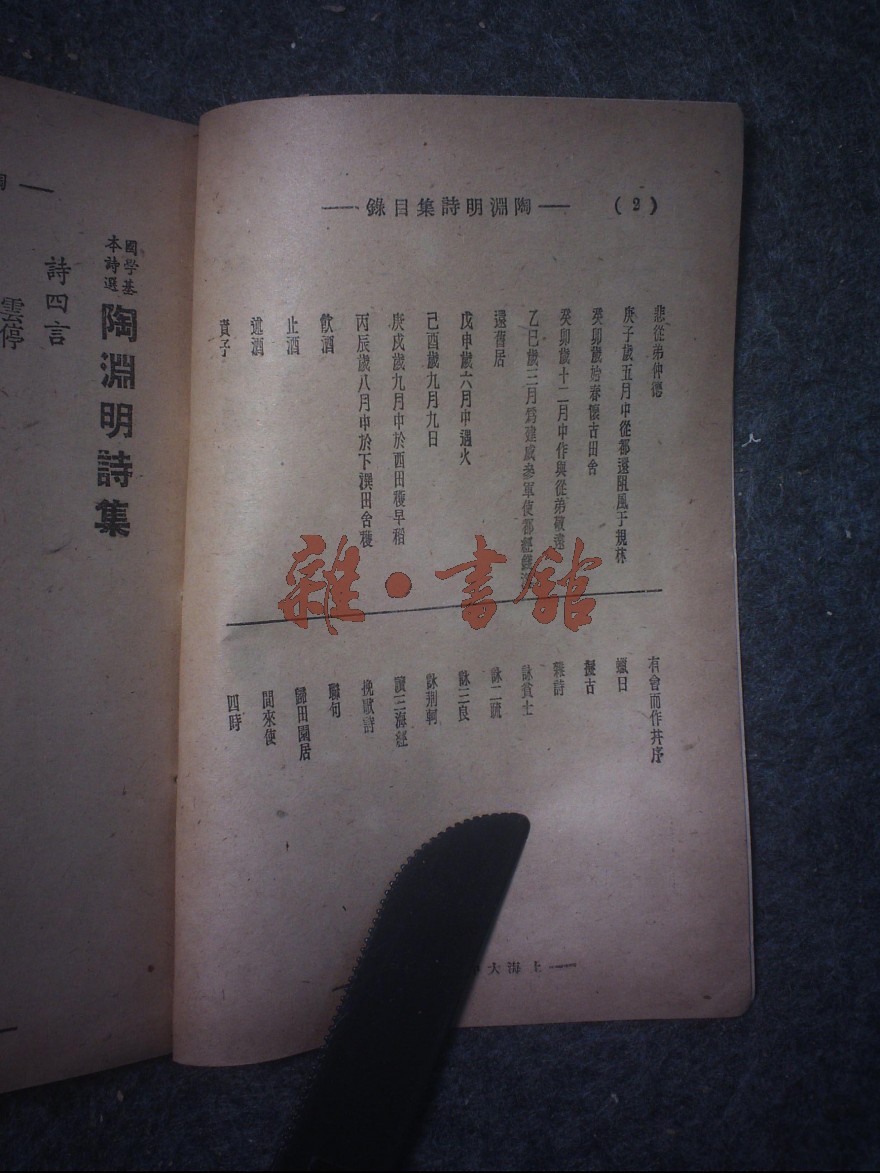 (2)
——陶淵明詩集目錄——
悲從弟仲德
庚子歲五月中從都還阻風于規林
癸卯歲始春懷古田舍
癸卯歲十二月中作與從弟敬遠
乙巳歲三月爲建威參軍使都經錢溪
還舊居
戊申歲六月中遇火
己酉歲九月九日
庚戌歲九月中於西田穫早稻
丙辰歲八月中於下潠田舍穫
飲酒
止酒
述酒
責子
有會而作并序
蠟日
擬古
雜詩
詠貧士
詠二疏
詠三良
詠荆軻
讀三海經
挽歌詩
聯句
歸田園居
問來使
四時
——上海大
雜·書館
國学基
本詩選
陶淵明詩集
詩四言
雲停